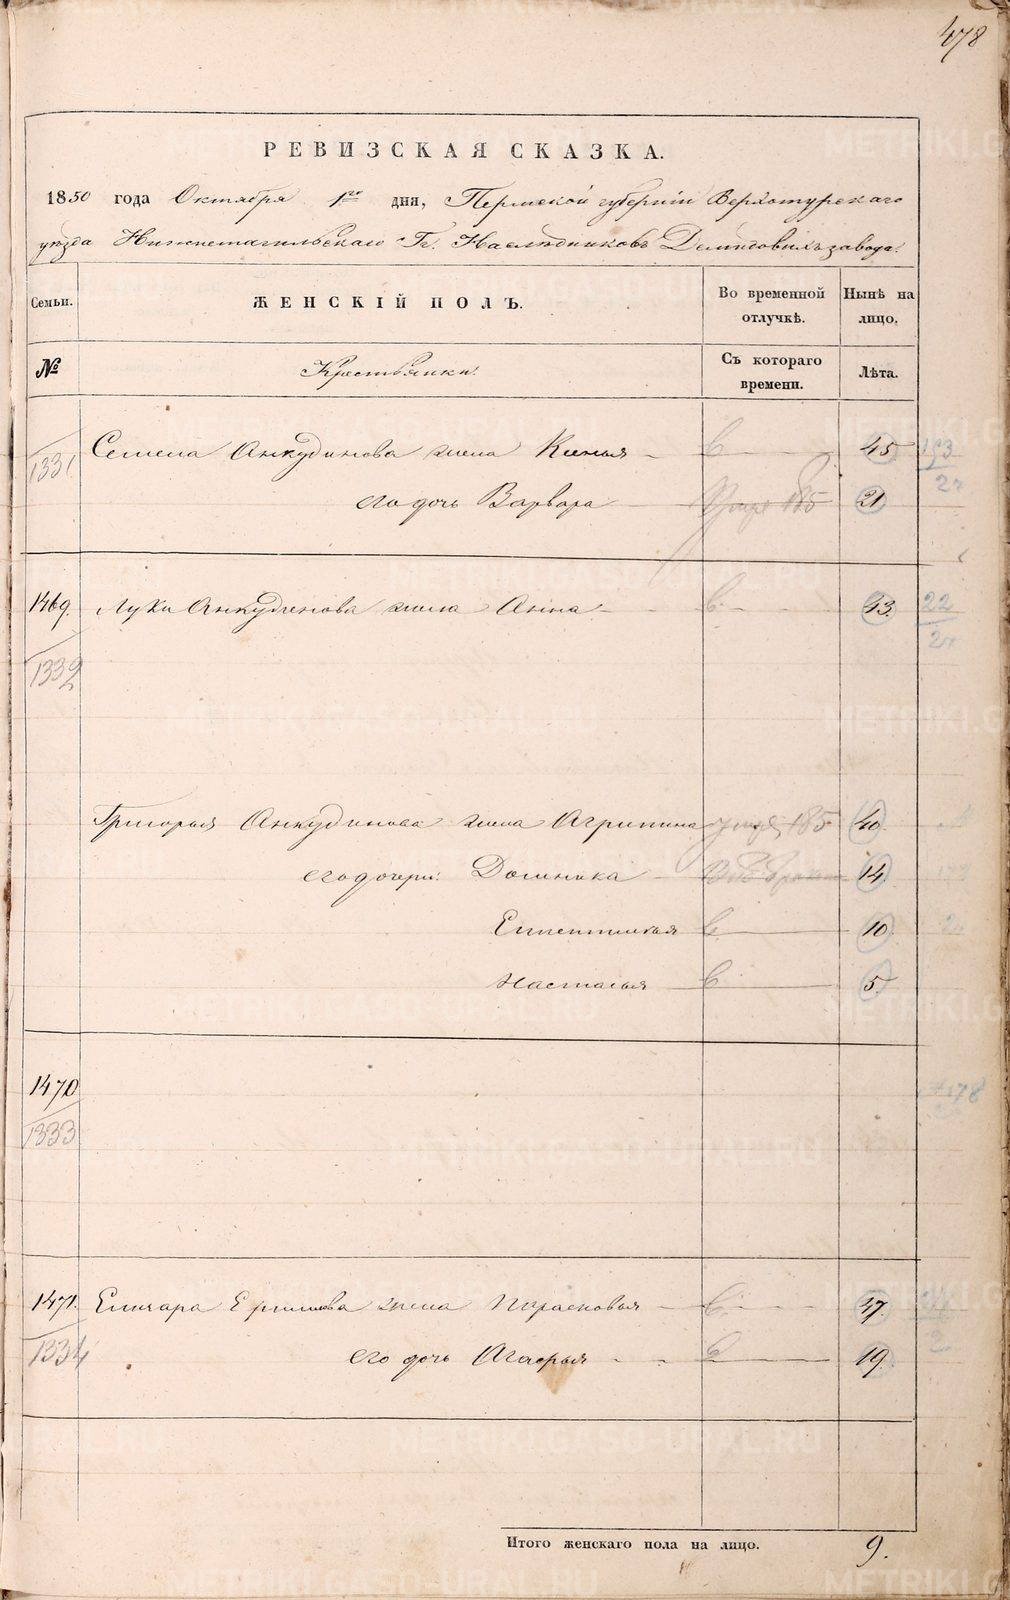 478
РЕВИЗСКАЯ СКАЗКА.
1850 года Октября 1го дня, Пермской губерніи Верхотурскаго
уѣзда Нижнетагильскаго Гг. Наслѣдниковъ Демидовыхъ завода.
Семьи. ЖЕНСКІЙ ПОЛЪ. Во временной отлучкѣ. Нынѣ на лицо.
№ Крестьянки. Съ котораго времени. Лѣта.
1331 Семена Анкудинова жена Ксенья в 45 2
его дочь Варвара 185 21
1469. Луки Анкудинова жена Анна в 43. 22
1332
Григорья Анкудинова жена Агрипина 185 40.
его дочери: Домника 14.
в 10.
Насталья в 5.
1470 478
1333
1471. Ершова жена Парасковья в 47.
1334 его дочь Агаѳрья в 19. 2
Итого женскаго пола на лицо. 9.
METRIKI.GASO-URAL.RU